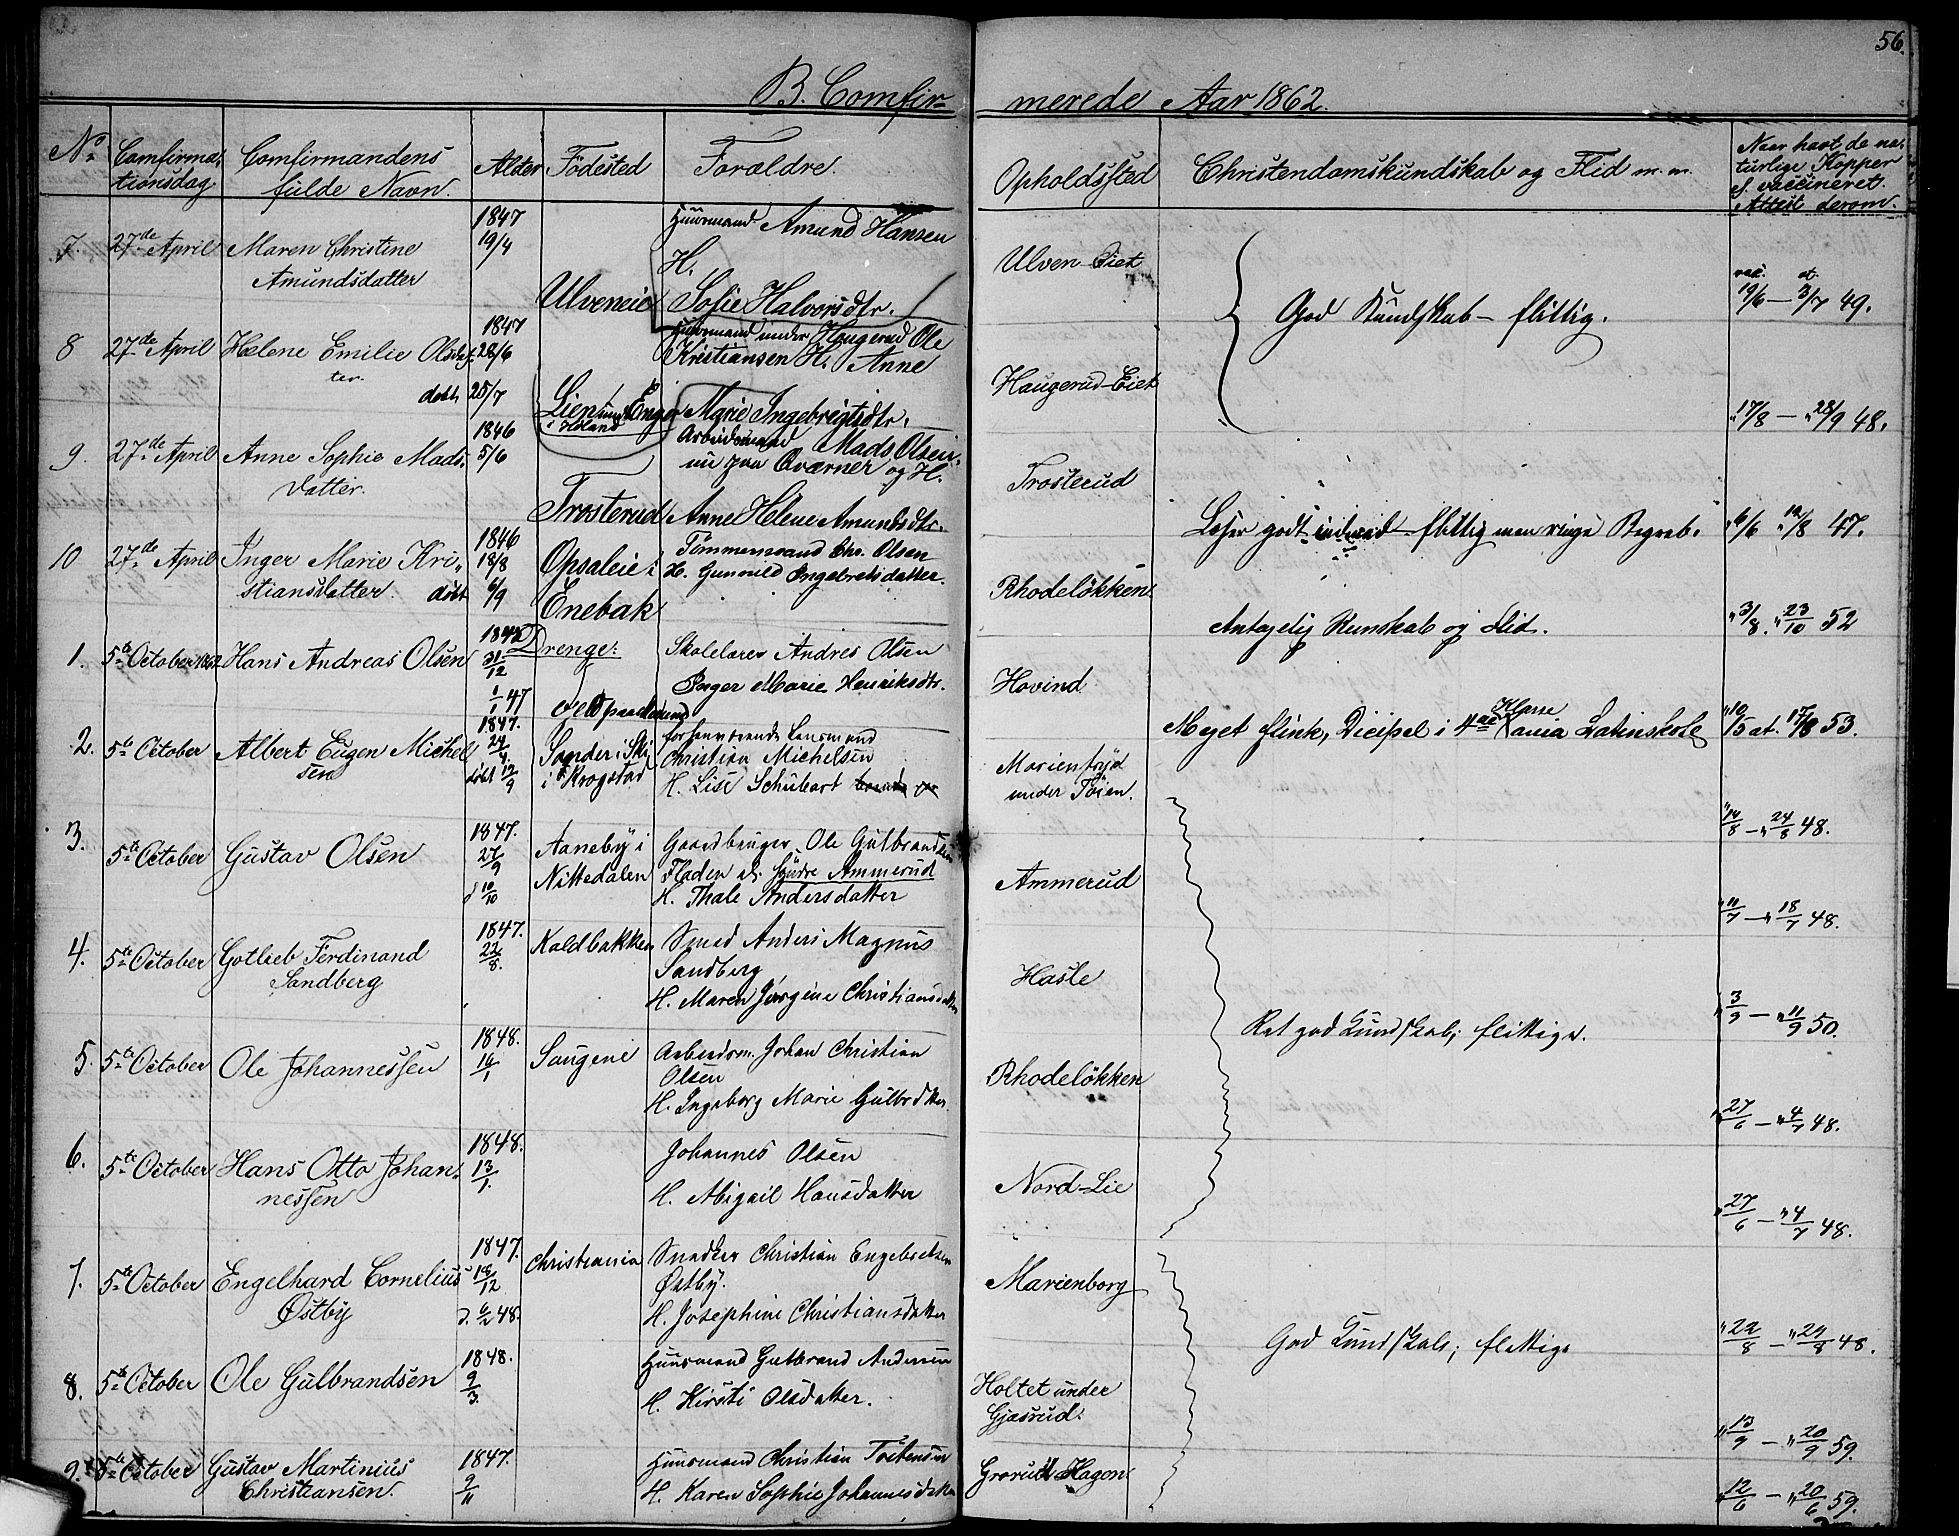 56.
B. Comfir-
merede Aar 1862.
No. Comfirma- Comfirmandens Alder Födested Forældre.
tionsdag fulde Navn.
Opholdssted Christendomskundskab og Flid m. m. Naar havt de na-
turlige Kopper
el. vaccineret.
Attest derom.
7. 27de April Maren Christine 1847 Huusmand Amund Hansen
Amundsdatter 19/4 H.
Ulveneie Sofie Halvorsdtr.
Ulven Eiet
vac. at.
19/6 — 3/7 49.
God Kundskab — flittig.
8 27de April Helene Emilie Olsdat- 1847 Huusmand under Haugerud Ole
ter. 28/6 Kristiansen H. Anne
döbt 25/7 Lien Enger Marie Ingebrigtsdtr.
i Höland
Haugerud-Eiet
17/8 — 28/9 48.
9. 27de April Anne Sophie Mads- 1846 Arbeidsmand Mads Olsen
datter. 5/6 nu paa Qværner og H.
Trosterud Anne Helene Amundsdtr.
Trosterud
Læser godt indenad flittig men ringe Begreb. 6/6 12/8 47.
10 27de April Inger Marie Kri- 1846 Opsaleie i Tömmermand Chr. Olsen
stiansdatter. 18/8 Enebak H. Gunnild Ingebretsdatter.
döbt 6/9
Rhodelökken
Antagelig Kunskab og Flid. 3/8. 23/10 52
Drenge:
1. 5te October 1862 Hans Andreas Olsen 31/12 Skolelærer Andres Olsen
1/1 47 Inger Marie Henriksdtr.
Hovind
Meget flink, Dicipel i 4de Klasse Xania Latinskole 10/5 at. 17/8 53.
2. 5te October Albert Eugen Michel- 1847. Sander i Ski forhenværende Lensmand
sen 24/4. i Krogstad Christian Michelsen
döbt 12/9 H. Lise Schubart
Marienfryd
under Töien.
14/8 — 24/8 48.
3. 5te October Gustav Olsen 1847. Aaneby i Gaardbruger Ole Gulbrandsen
27/9 Nittedalen Fladen el. Söndre Ammerud
d 10/10 H. Thale Andersdatter
Ammerud
11/7 — 18/7 48.
4. 5te October Gotlieb Ferdinand 1847. Kaldbakken Smed Anders Magnus
Sandberg 22/8. Sandberg
H. Maren Jörgine Christiansdatter
Hasle
3/9 — 11/9 50.
Ret god Kundskab; flittige.
5. 5te October Ole Johannessen 1848. Saugene Arbeidsm. Johan Christian
16/1 Olsen
H. Ingeborg Marie Gulbrdtter
Rhodelökken
27/6 — 4/7 48.
6. 5te October Hans Otto Johan- 1848. Johannes Olsen
nessen 13/1. H. Abigail Hansdatter
Nord-Lie
27/6 — 4/7 48.
7. 5te October Engelhard Cornelius 1847. Christiania Snedker Christian Engebretsen
Østby 18/12 Østby.
d. 6/2 48. H. Josephine Christiansdatter
Marienborg
22/8 — 29/8 48.
God Kundskab; flittige
8. 5te October Ole Gulbrandsen 1848. Huusmand Gulbrand Andersen
9/3. H. Kirsti Olsdatter.
Holtet under
Gjæsrud.
13/9 — 20/9 59.
9. 5te October Gustav Martinius 1847. Huusmand Christian Torstensen
Christiansen. 9/11 H. Karen Sophie Johannesdatter
Grorud Hagen
12/6 — 20/6 59.